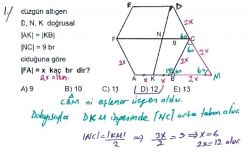 düzgün altıgen
D, N, K doğrusal
|AK| = |KB|
|NC| = 9 br
olduğuna göre
|FA| = x kaç br dir?
2x olsun.
E
D
2x
F
N
9
C
60
2x
60
A
x
K
x
B
2x
M
A) 9 B) 10 C) 11 D) 12 E) 13
CBM eşkenar üçgen olur.
Dolayısıyla DKM üçgeninde [NC] orta taban olur.
|NC| = |KM|/2 ⇒ 3x/2 = 9 ⇒ x = 6
2x = 12 olur.